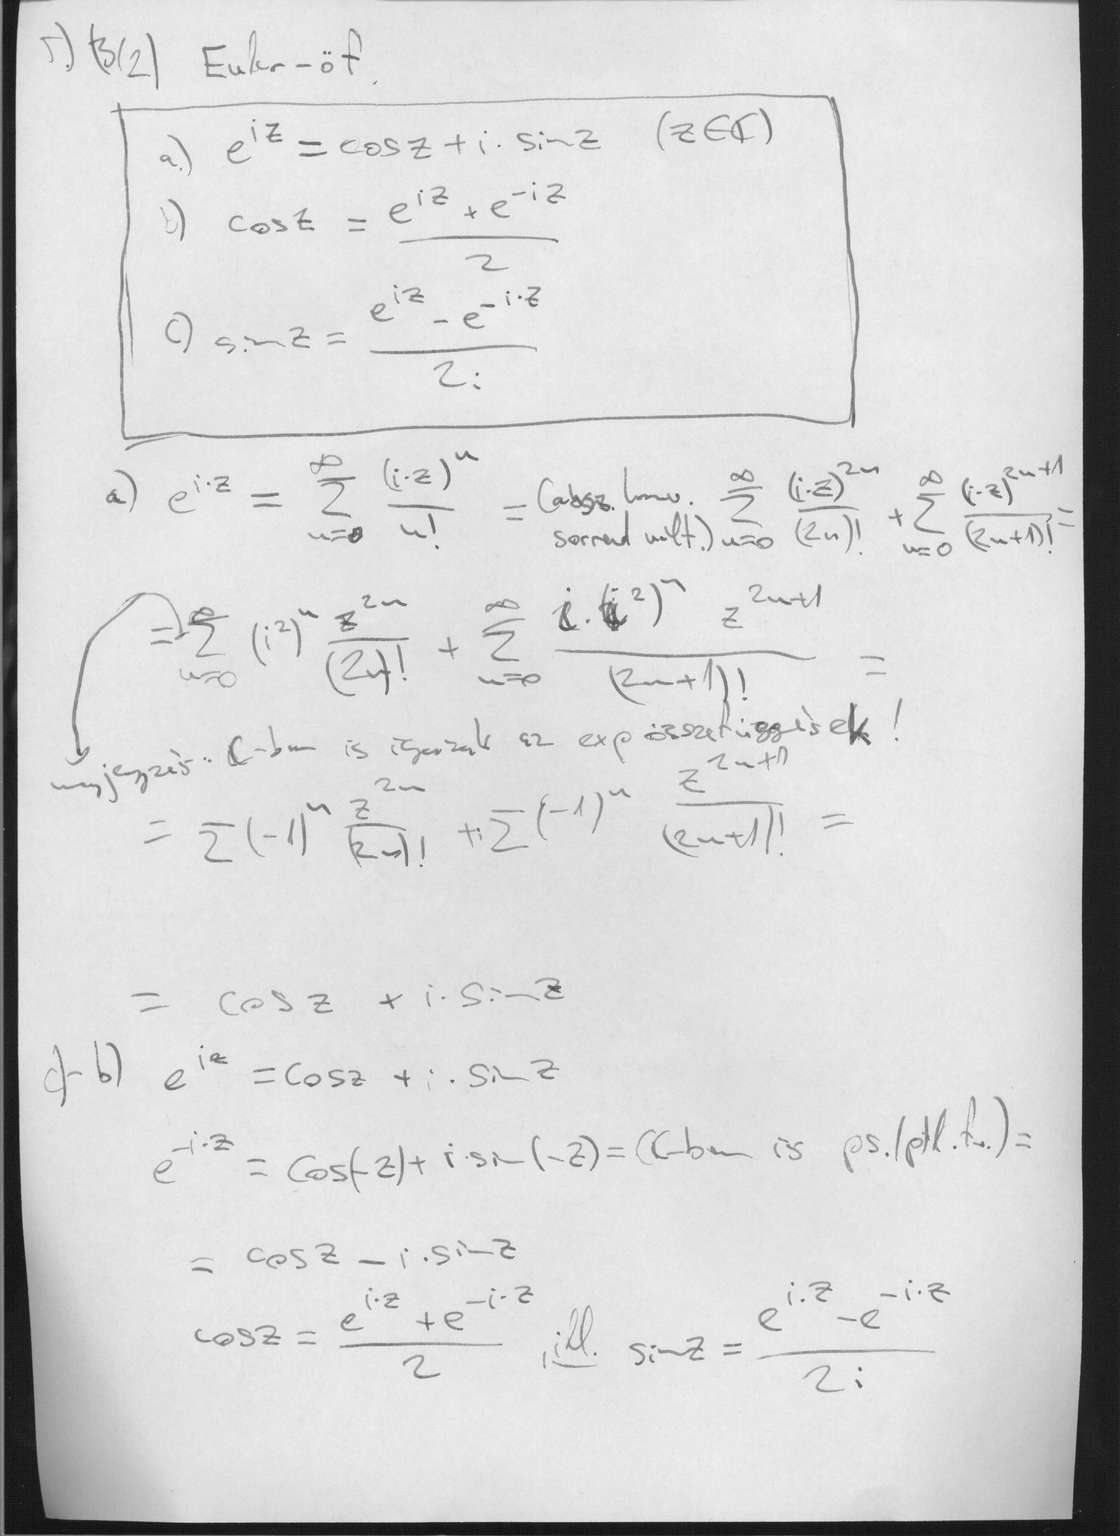 5.) B/2) Euler-öf.
a.) e^{iz} = cosz + i · sinz (z∈ℂ)
b) cosz = \frac{e^{iz} + e^{-iz}}{2}
c) sinz = \frac{e^{iz} - e^{-i·z}}{2i}
a) e^{i·z} = \sum_{n=0}^{∞} \frac{(i·z)^n}{n!} = (absz. konv. sorrend vált.) \sum_{n=0}^{∞} \frac{(i·z)^{2n}}{(2n)!} + \sum_{n=0}^{∞} \frac{(i·z)^{2n+1}}{(2n+1)!} =
= \sum_{n=0}^{∞} (i^2)^n \frac{z^{2n}}{(2n)!} + \sum_{n=0}^{∞} \frac{i·(i^2)^n z^{2n+1}}{(2n+1)!} =
megjegyzés: ℂ-ben is igazak az exp összefüggések!
= \sum (-1)^n \frac{z^{2n}}{(2n)!} + i \sum (-1)^n \frac{z^{2n+1}}{(2n+1)!} =
= cosz + i · sinz
c)-b) e^{iz} = cosz + i · sinz
e^{-i·z} = cos(-z) + i·sin(-z) = (ℂ-ben is ps./ptl. fv.) =
= cosz - i·sinz
cosz = \frac{e^{i·z} + e^{-i·z}}{2}, ill. sinz = \frac{e^{i·z} - e^{-i·z}}{2i}